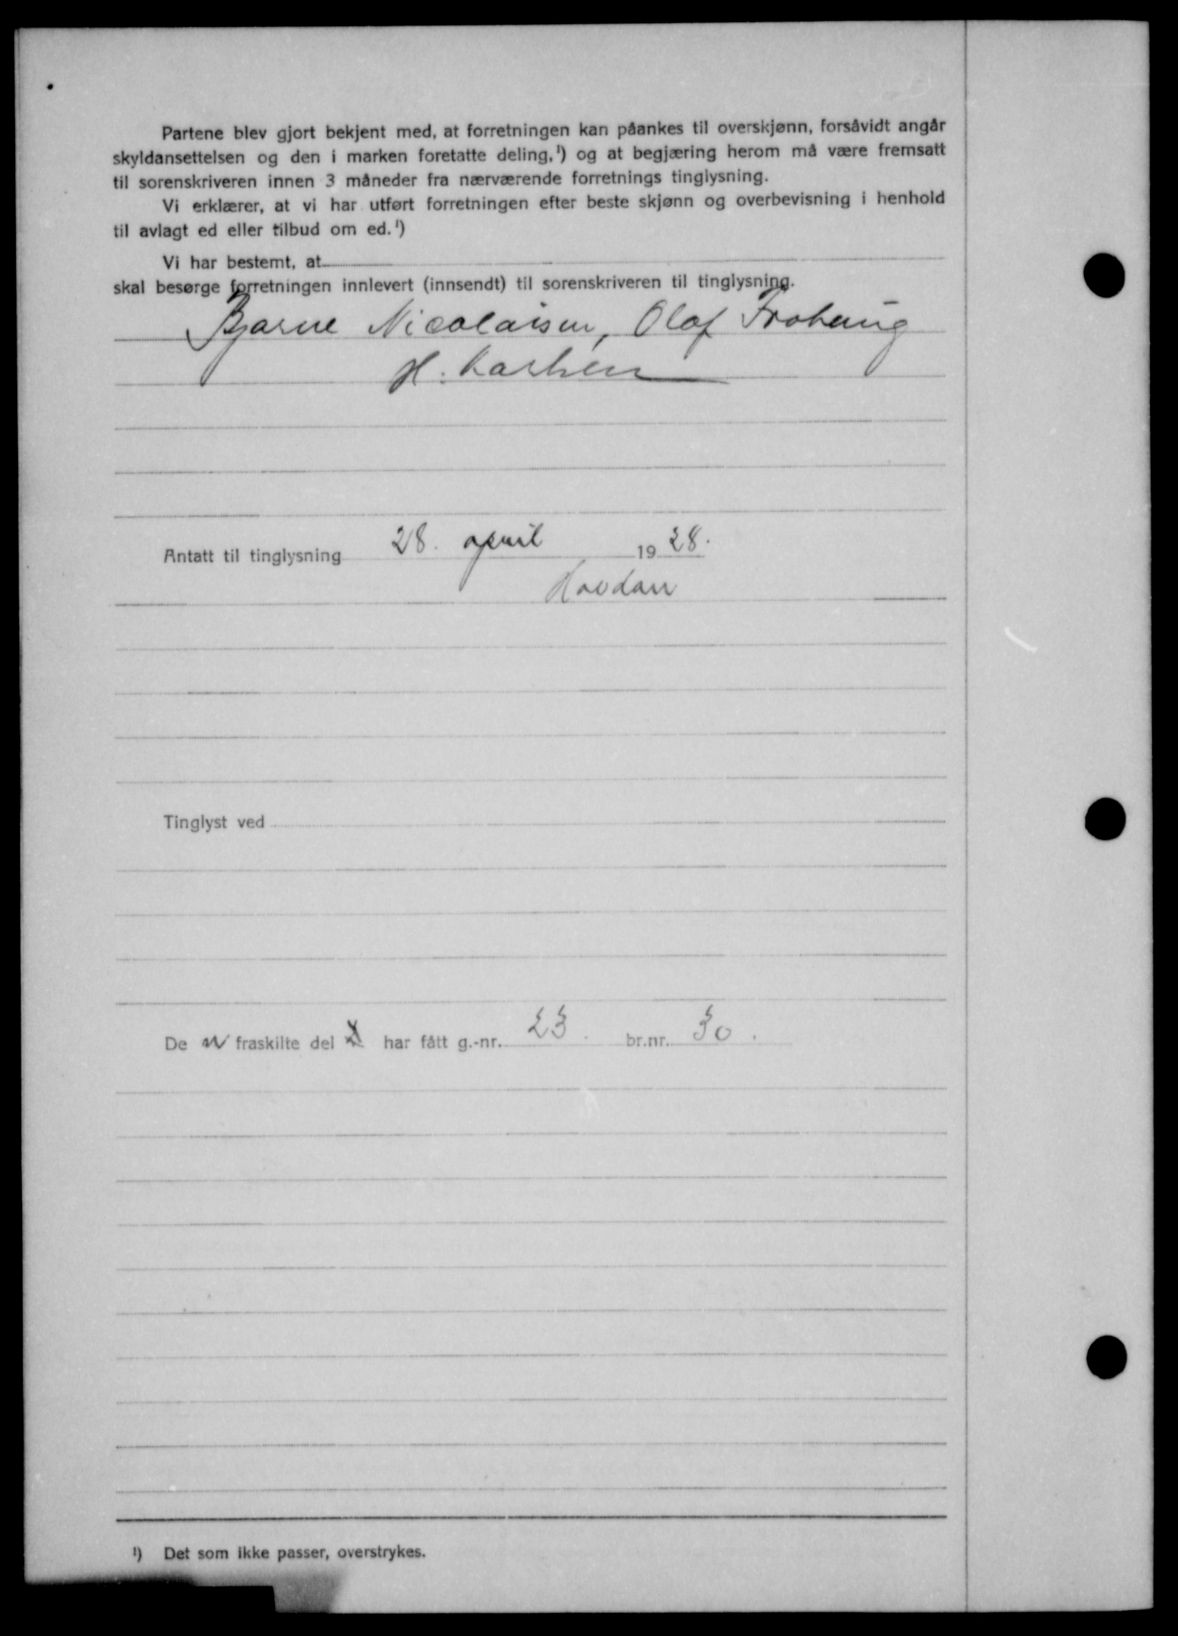 Partene blev gjort bekjent med, at forretningen kan påankes til overskjønn, forsåvidt angår
skyldansettelsen og den i marken foretatte deling,¹) og at begjæring herom må være fremsatt
til sorenskriveren innen 3 måneder fra nærværende forretnings tinglysning.
Vi erklærer, at vi har utført forretningen efter beste skjønn og overbevisning i henhold
til avlagt ed eller tilbud om ed.¹)
Vi har bestemt, at
skal besørge forretningen innlevert (innsendt) til sorenskriveren til tinglysning.
Bjarne Nicolaisen, Olaf Frohaug
H. Karlsen
Antatt til tinglysning 28. april 1928.
Hovdan
Tinglyst ved
De fraskilte del har fått g.-nr. 23. br.nr. 30.
¹) Det som ikke passer, overstrykes.